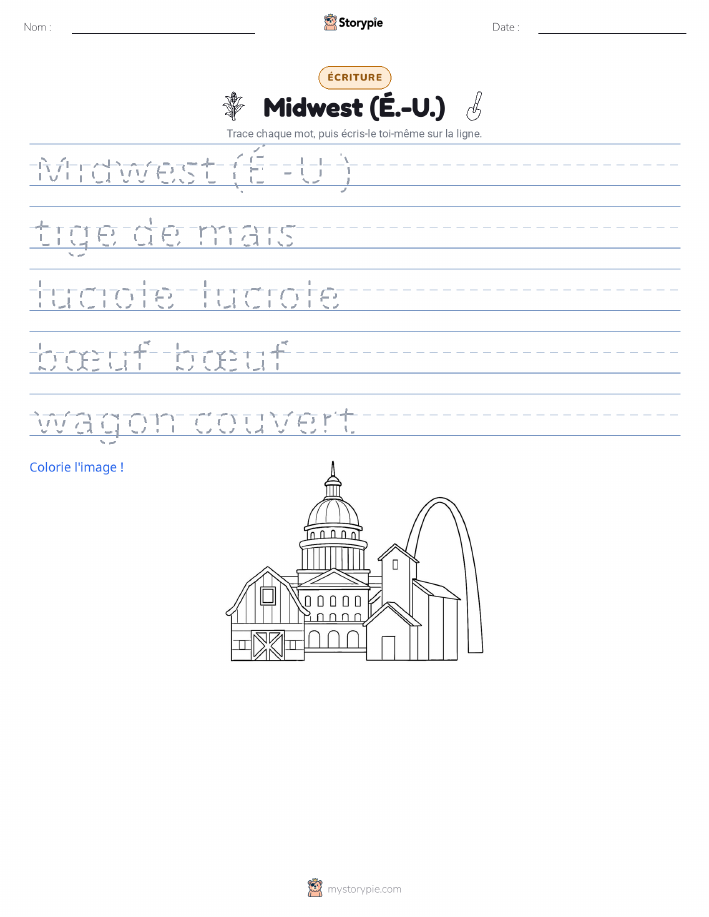 Nom :
Storypie
Date :
ÉCRITURE
Midwest (É.-U.)
Trace chaque mot, puis écris-le toi-même sur la ligne.
Midwest (É -U )
tige de maïs
luciole luciole
bœuf bœuf
wagon couvert
Colorie l'image !
mystorypie.com